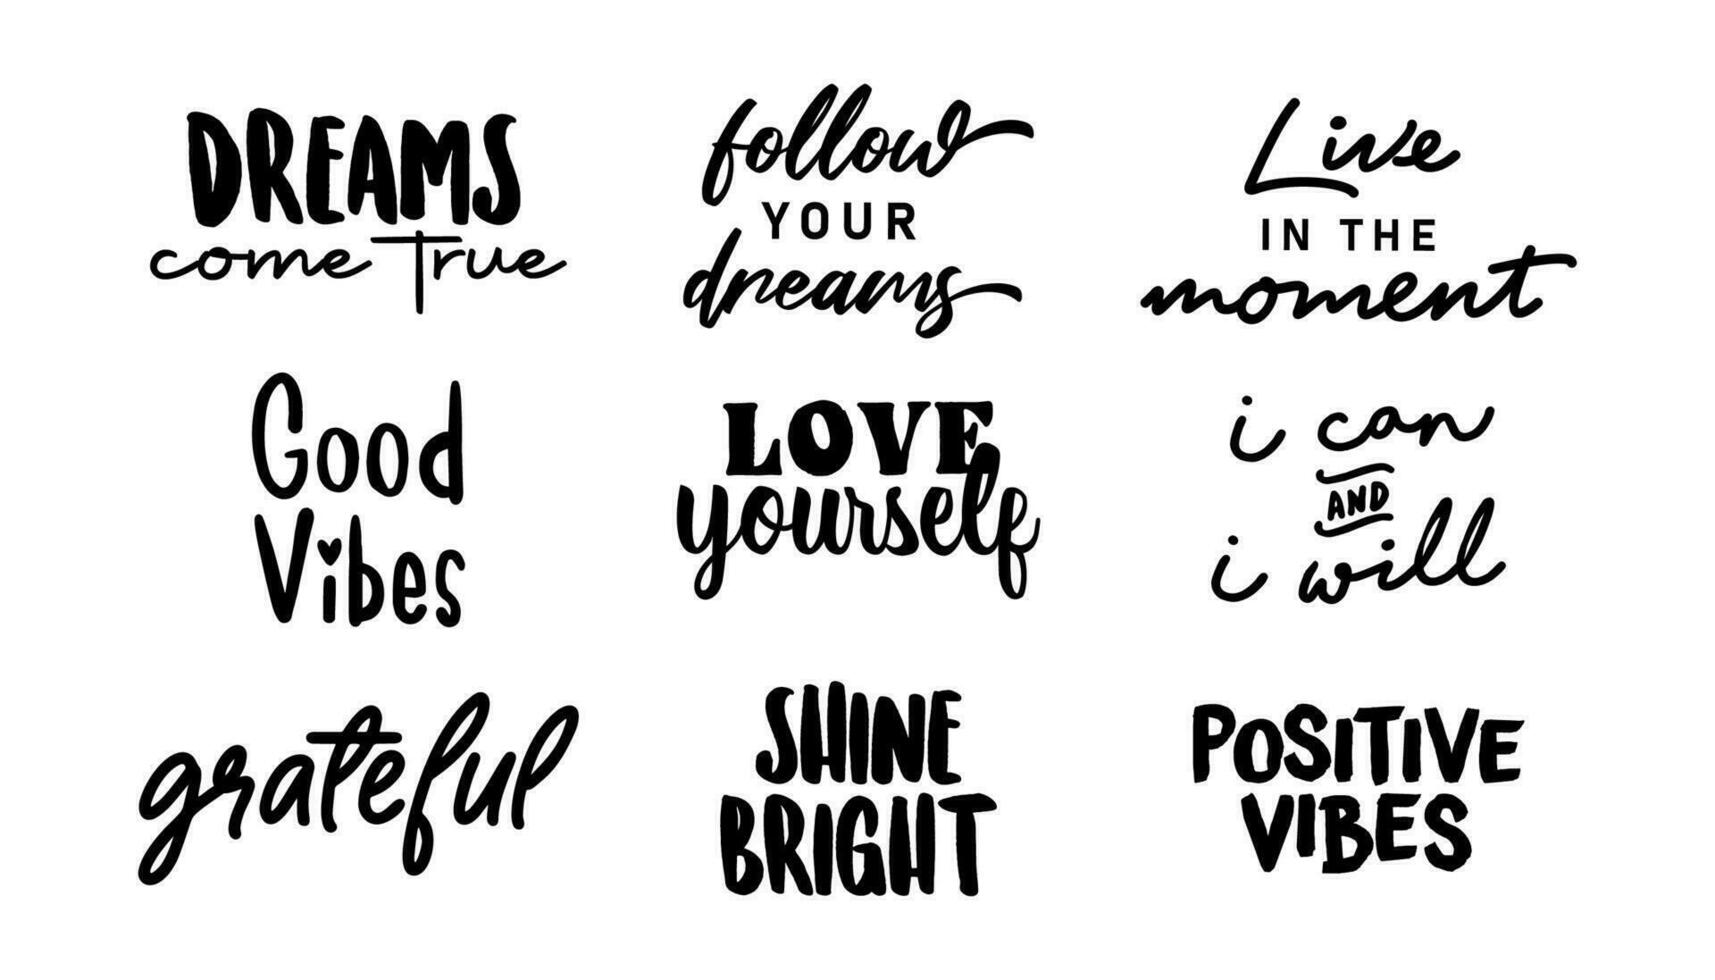 DREAMS
come True
follow
YOUR
dreams
Live
IN THE
moment
Good
Vibes
LOVE
yourself
i can
AND
i will
grateful
SHINE
BRIGHT
POSITIVE
VIBES